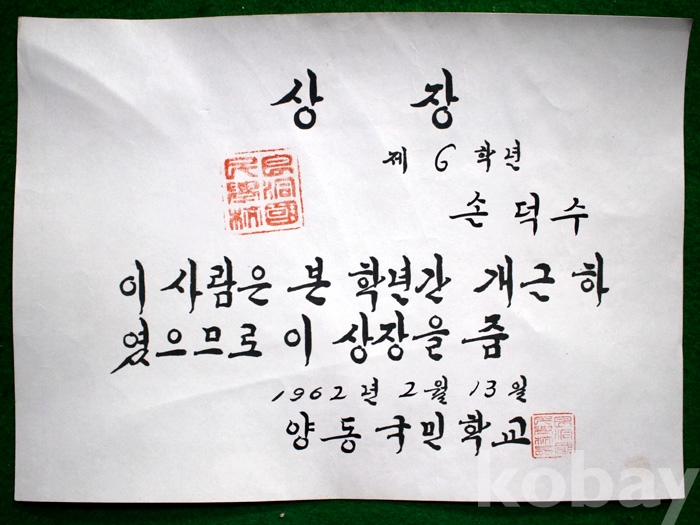 상 장
제 6 학년
손 덕 수
이 사람은 본 학년간 개근 하
였으므로 이 상장을 줌
1962년 2월 13일
양동국민학교
kobay